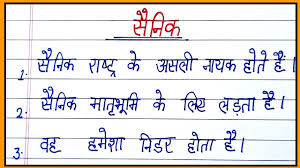 सैनिक
1. सैनिक राष्ट्र के असली नायक होते हैं।
2. सैनिक मातृभूमि के लिए लड़ता है।
3. वह हमेशा निडर होता है।